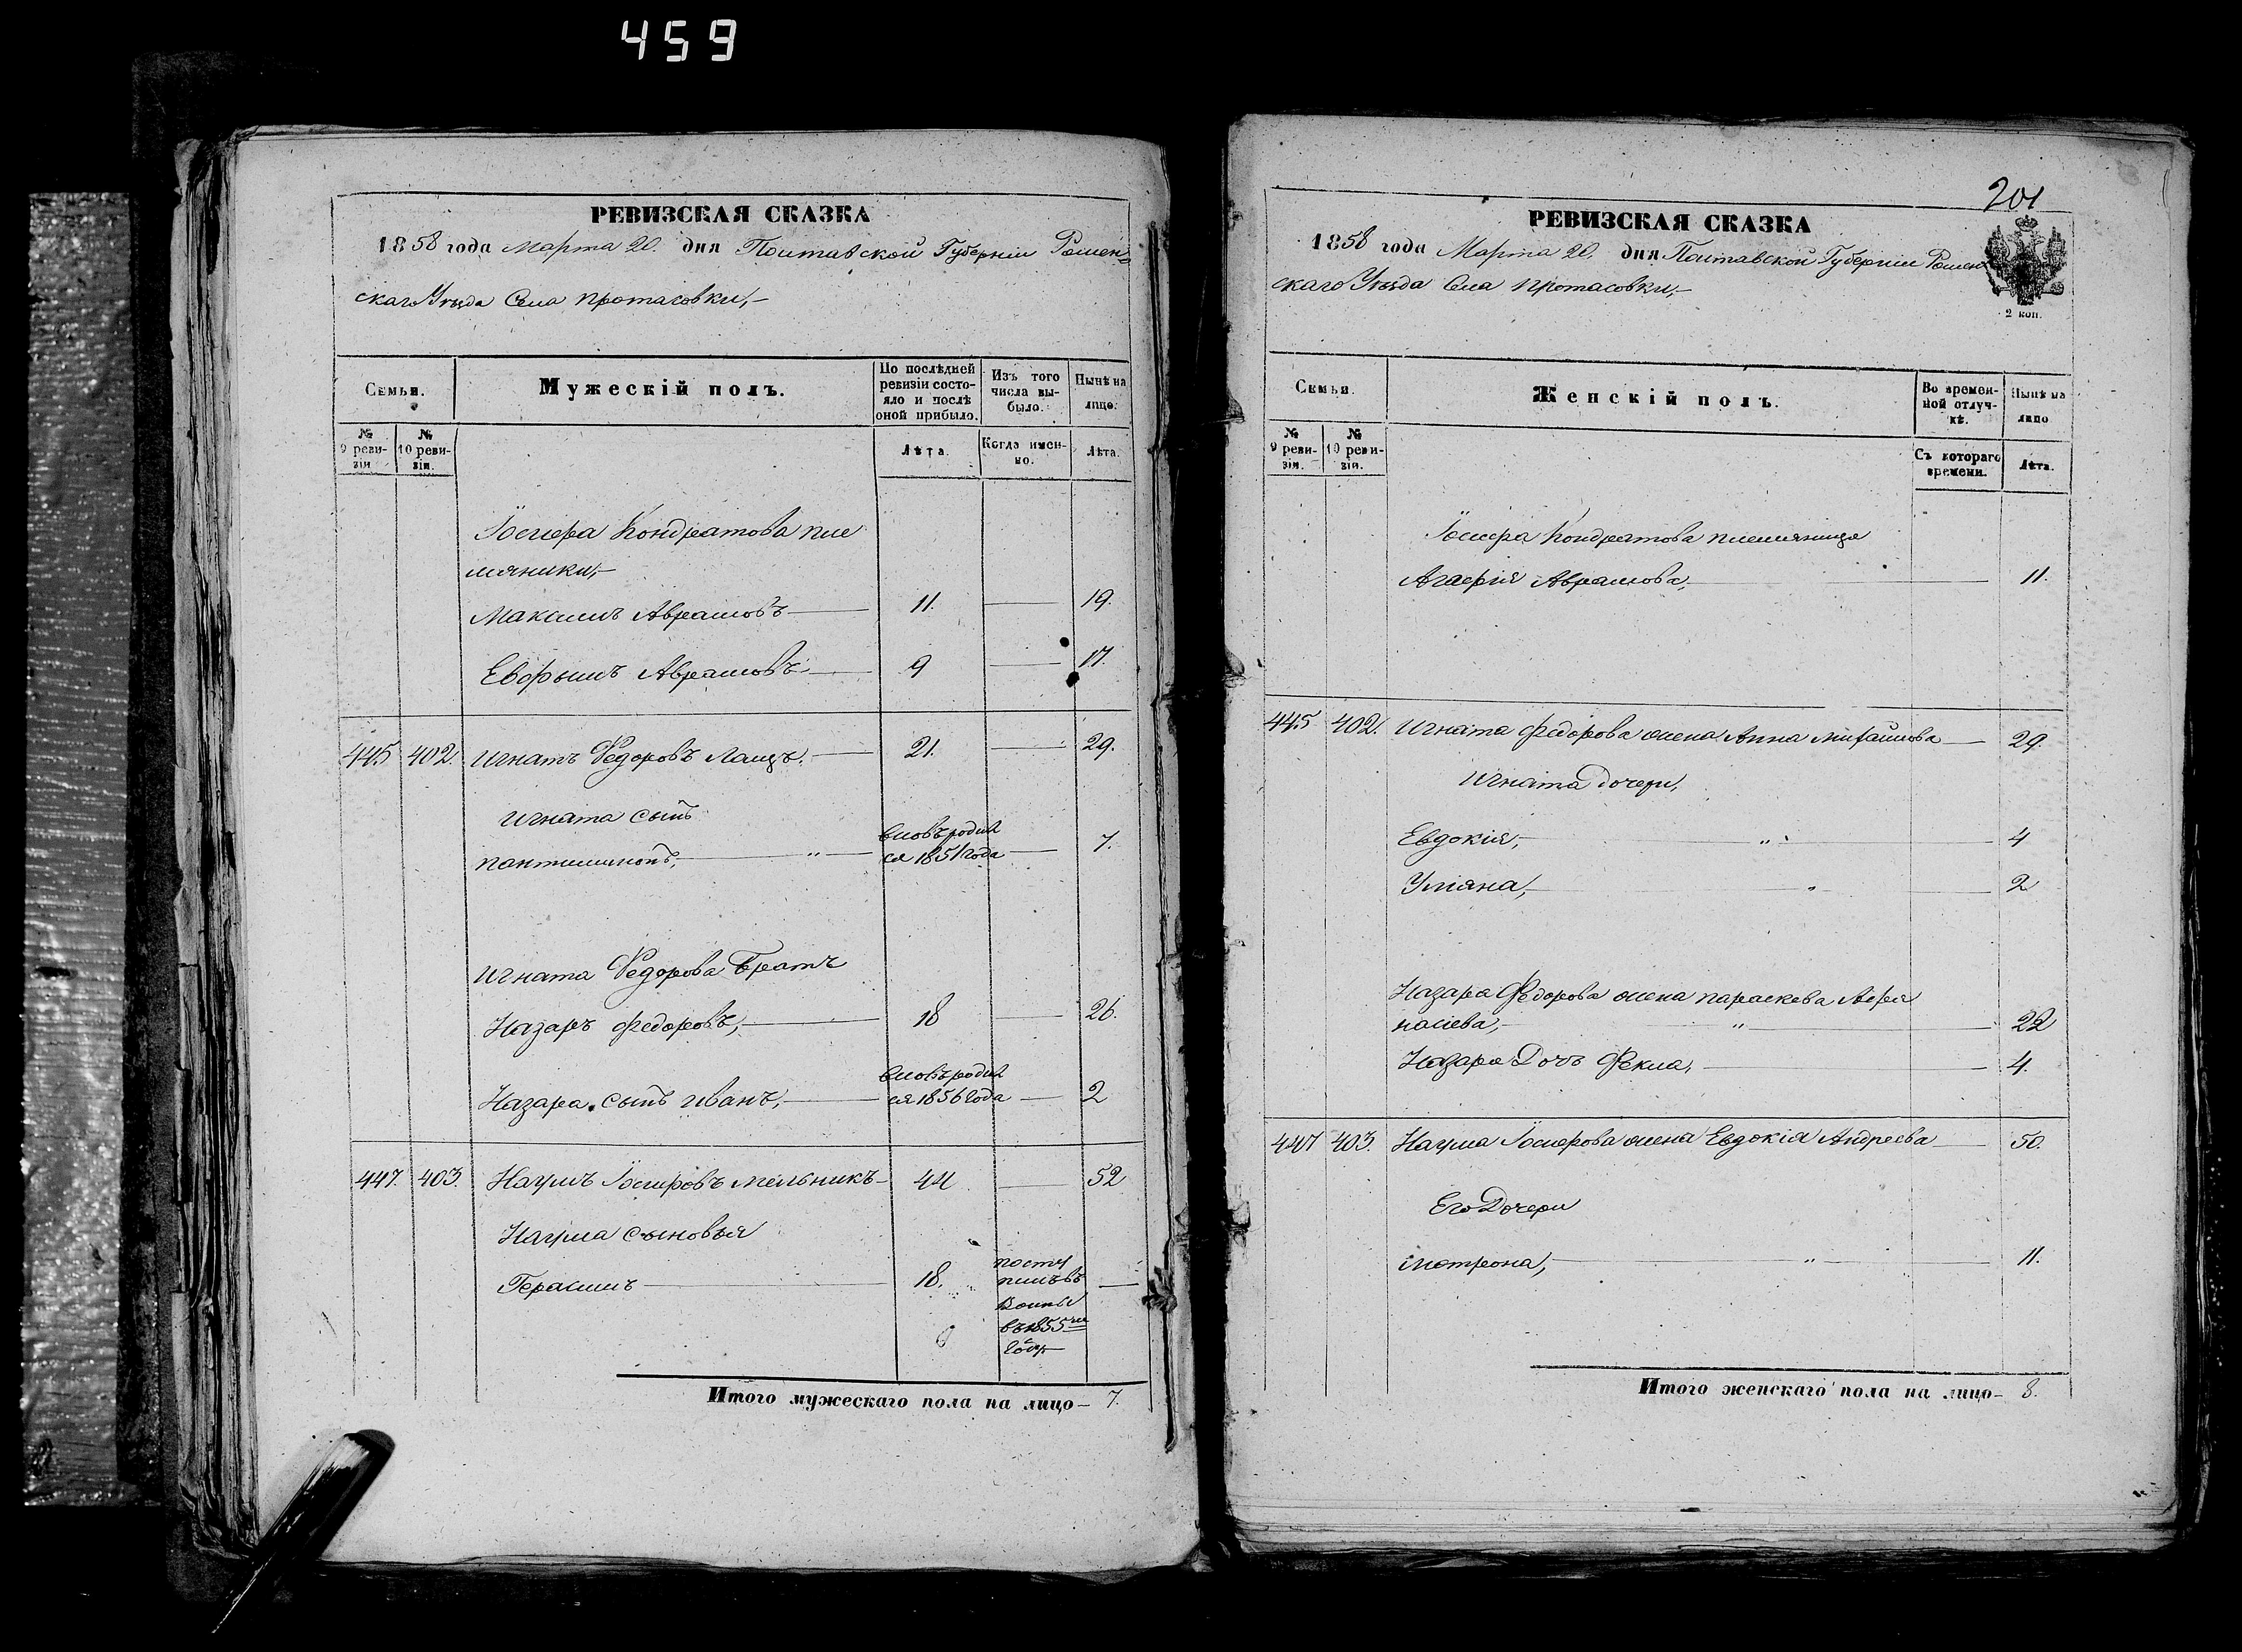 459
РЕВИЗСКАЯ СКАЗКА
1858 года Марта 20. дня Полтавской Губерніи Ромен-
скаго Уѣзда Села Протасовки,
Семьи.
Мужескій полъ.
По послѣдней ревизіи состояло и послѣ оной прибыло.
Изъ того числа выбыло.
Нынѣ на лицо.
№ 9 ревизіи
№ 10 ревизіи.
Лѣта.
Когда именно.
Лѣта.
Іосифа Кондратова пле
мяники,
Максимъ Аврамовъ 11. 19.
Аврамовъ 9 17.
445 402. Игнатъ Ѳедоровъ 21. 29.
Игната сынъ
вновь родил
ся 1851 года 7.
Игната Ѳедорова братъ
Назаръ Федоровъ, 18 26.
вновь родил
Назара сынъ Иванъ, ся 1856 года 2
447. 403. Наумъ Мельникъ 44 52
Наума сыновья
Герасимъ 18. посту
пилъ въ
въ 1855 м
году
Итого мужескаго пола на лицо 7.
201
РЕВИЗСКАЯ СКАЗКА
1858 года Марта 20. дня Полтавской Губерніи Ромен
скаго Уѣзда Села Протасовки,
2 коп.
Семьи.
Женскій полъ.
Во временной отлучкѣ.
Нынѣ на лицо
№ 9 ревизіи.
№ 10 ревизіи.
Съ котораго времени.
Лѣта.
Іосифа Кондратова племяница
Аврамова, 11.
445 402. Игната Федорова жена Анна Михайлова 29.
Игната дочери,
Евдокія, 4
Уліяна, 2
Назара Федорова жена Параскева Афа
насіева, 22
Назара дочь Фекла, 4.
447 403. Наума жена Евдокія Андреева 50.
Его Дочери
Мотрона, 11.
Итого женскаго пола на лицо 8.